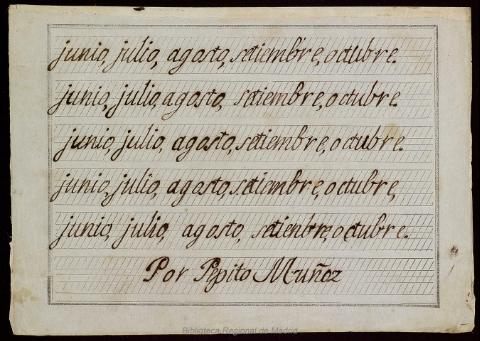 junio, julio, agosto, setiembre, octubre.
junio, julio, agosto, setiembre, octubre.
junio, julio, agosto, setiembre, octubre.
junio, julio, agosto, setiembre, octubre,
junio, julio, agosto, setienbre, octubre.
Por Pepito Muñoz
Biblioteca Regional de Madrid